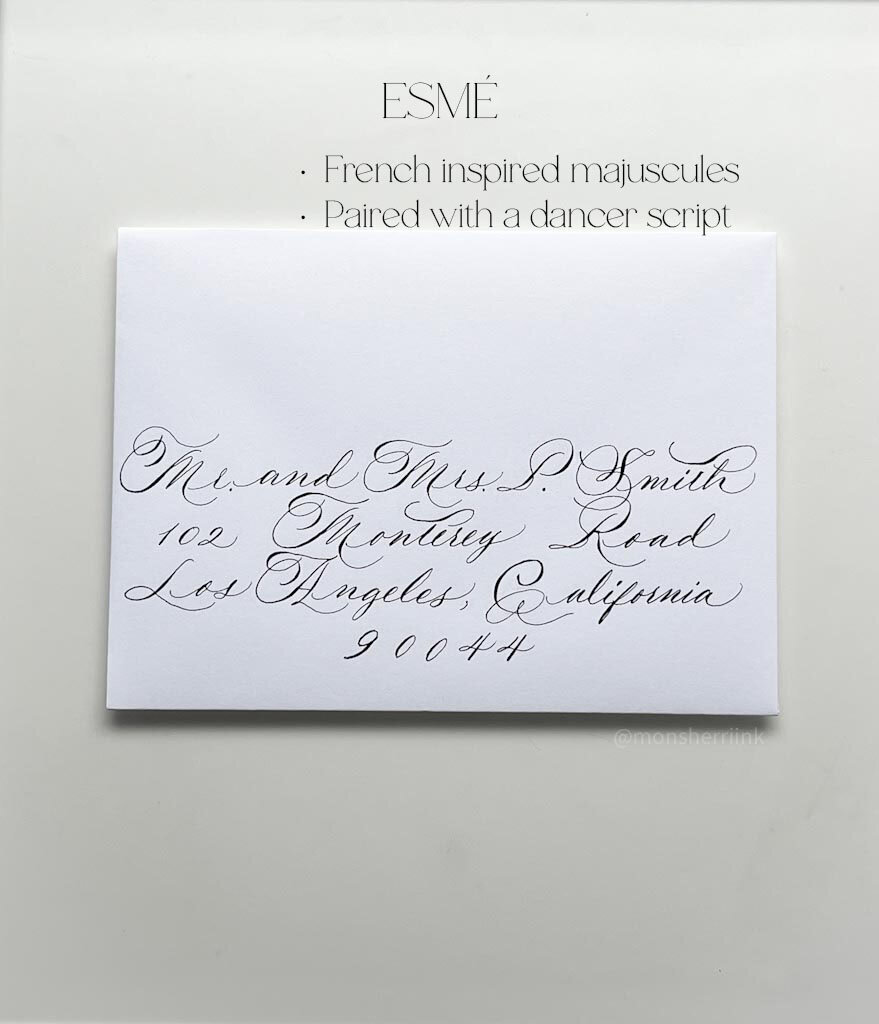 ESMÉ
· French inspired majuscules
· Paired with a dancer script
Mr. and Mrs. P. Smith
102 Monterey Road
Los Angeles, California
90044
@monsherriink